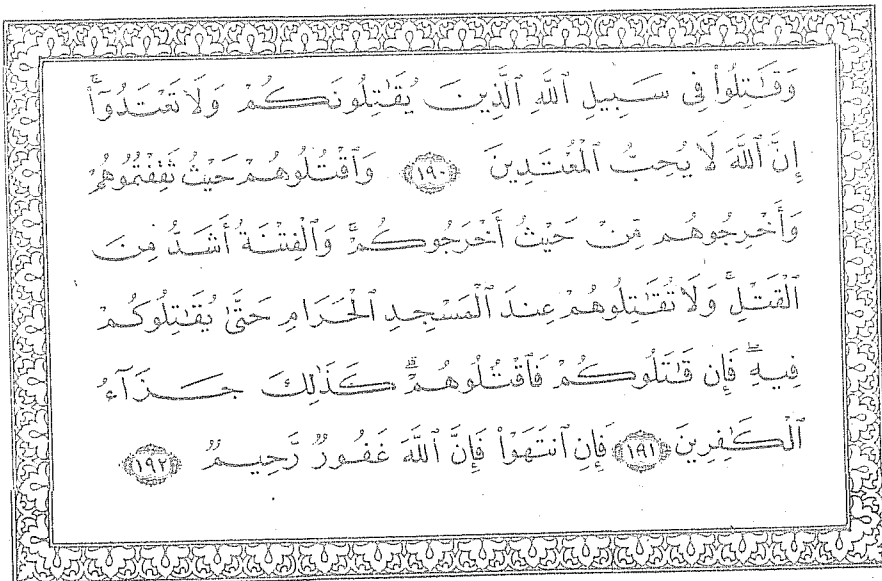 وَقَـٰتِلُوا۟ فِى سَبِيلِ ٱللَّهِ ٱلَّذِينَ يُقَـٰتِلُونَكُمْ وَلَا تَعْتَدُوٓا۟ۚ
إِنَّ ٱللَّهَ لَا يُحِبُّ ٱلْمُعْتَدِينَ ﴿١٩٠﴾ وَٱقْتُلُوهُمْ حَيْثُ ثَقِفْتُمُوهُمْ
وَأَخْرِجُوهُم مِّنْ حَيْثُ أَخْرَجُوكُمْۚ وَٱلْفِتْنَةُ أَشَدُّ مِنَ
ٱلْقَتْلِۚ وَلَا تُقَـٰتِلُوهُمْ عِندَ ٱلْمَسْجِدِ ٱلْحَرَامِ حَتَّىٰ يُقَـٰتِلُوكُمْ
فِيهِۖ فَإِن قَـٰتَلُوكُمْ فَٱقْتُلُوهُمْۗ كَذَٰلِكَ جَزَآءُ
ٱلْكَـٰفِرِينَ ﴿١٩١﴾ فَإِنِ ٱنتَهَوْا۟ فَإِنَّ ٱللَّهَ غَفُورٌ رَّحِيمٌ ﴿١٩٢﴾